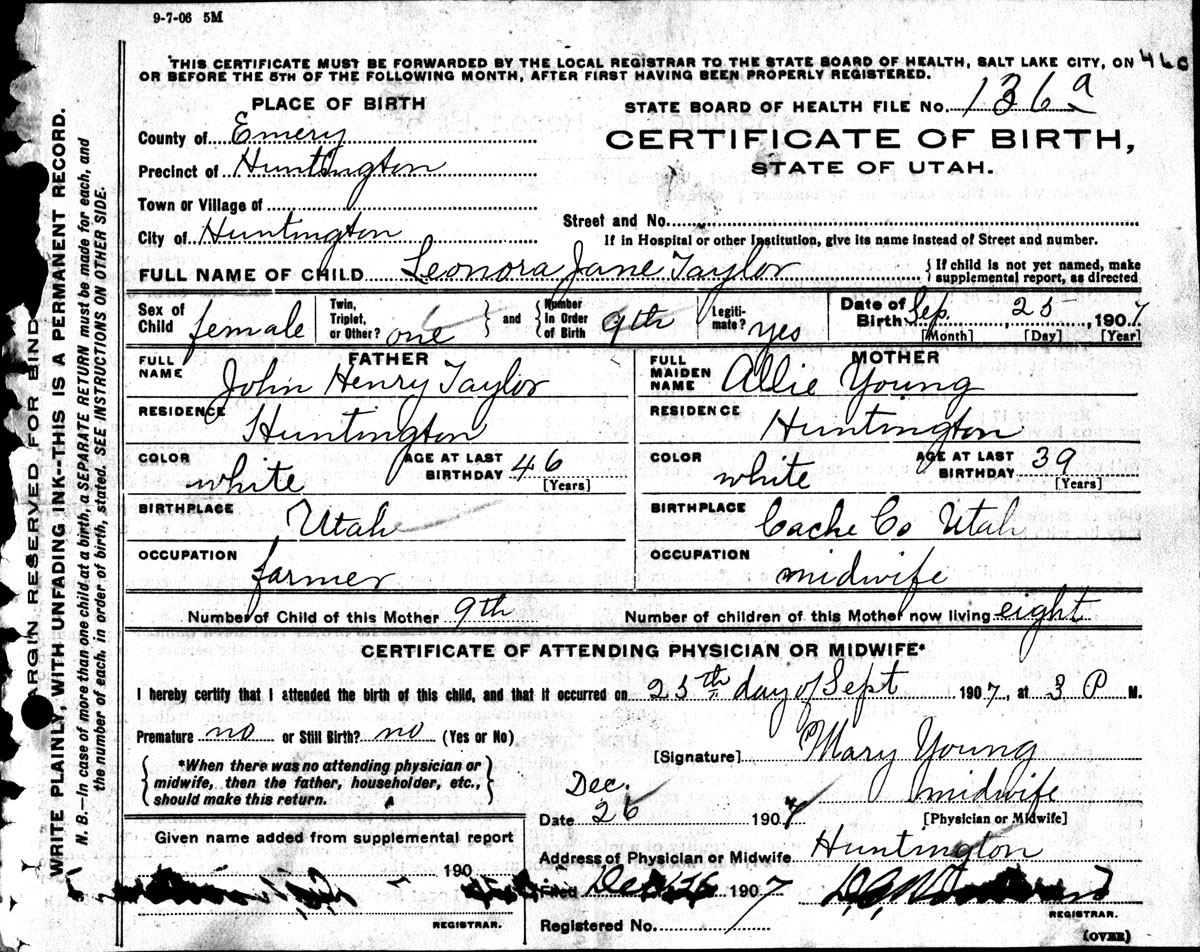 9-7-06 5M
THIS CERTIFICATE MUST BE FORWARDED BY THE LOCAL REGISTRAR TO THE STATE BOARD OF HEALTH, SALT LAKE CITY, ON
OR BEFORE THE 5TH OF THE FOLLOWING MONTH, AFTER FIRST HAVING BEEN PROPERLY REGISTERED.
PLACE OF BIRTH
STATE BOARD OF HEALTH FILE No. 136a
County of Emery
CERTIFICATE OF BIRTH,
Precinct of Huntington
STATE OF UTAH.
Town or Village of
Street and No.
City of Huntington
If in Hospital or other Institution, give its name instead of Street and number.
FULL NAME OF CHILD Leonora Jane Taylor
{ If child is not yet named, make
supplemental report, as directed
Sex of Child female
Twin, Triplet, or Other? one } and { Number In Order of Birth 9th
Legitimate? yes
Date of Birth Sep. 25, 1907
[Month] [Day] [Year]
FATHER
FULL NAME John Henry Taylor
RESIDENCE Huntington
COLOR white AGE AT LAST BIRTHDAY 46 [Years]
BIRTHPLACE Utah
OCCUPATION farmer
MOTHER
FULL MAIDEN NAME Allie Young
RESIDENCE Huntington
COLOR white AGE AT LAST BIRTHDAY 39 [Years]
BIRTHPLACE Cache Co Utah
OCCUPATION midwife
Number of Child of this Mother 9th Number of children of this Mother now living eight
CERTIFICATE OF ATTENDING PHYSICIAN OR MIDWIFE*
I hereby certify that I attended the birth of this child, and that it occurred on 25th day of Sept 1907, at 3 P M.
Premature no or Still Birth? no (Yes or No)
[Signature] Mary Young
{ *When there was no attending physician or
midwife, then the father, householder, etc.,
should make this return. }
midwife
[Physician or Midwife]
Date Dec. 26 1907
Given name added from supplemental report
190
REGISTRAR.
Address of Physician or Midwife Huntington
Filed Dec 26 1907
REGISTRAR.
Registered No.
(OVER)
MARGIN RESERVED FOR BIND
WRITE PLAINLY, WITH UNFADING INK--THIS IS A PERMANENT RECORD.
N. B.—In case of more than one child at a birth, a SEPARATE RETURN must be made for each, and
the number of each, in order of birth, stated. SEE INSTRUCTIONS ON OTHER SIDE.